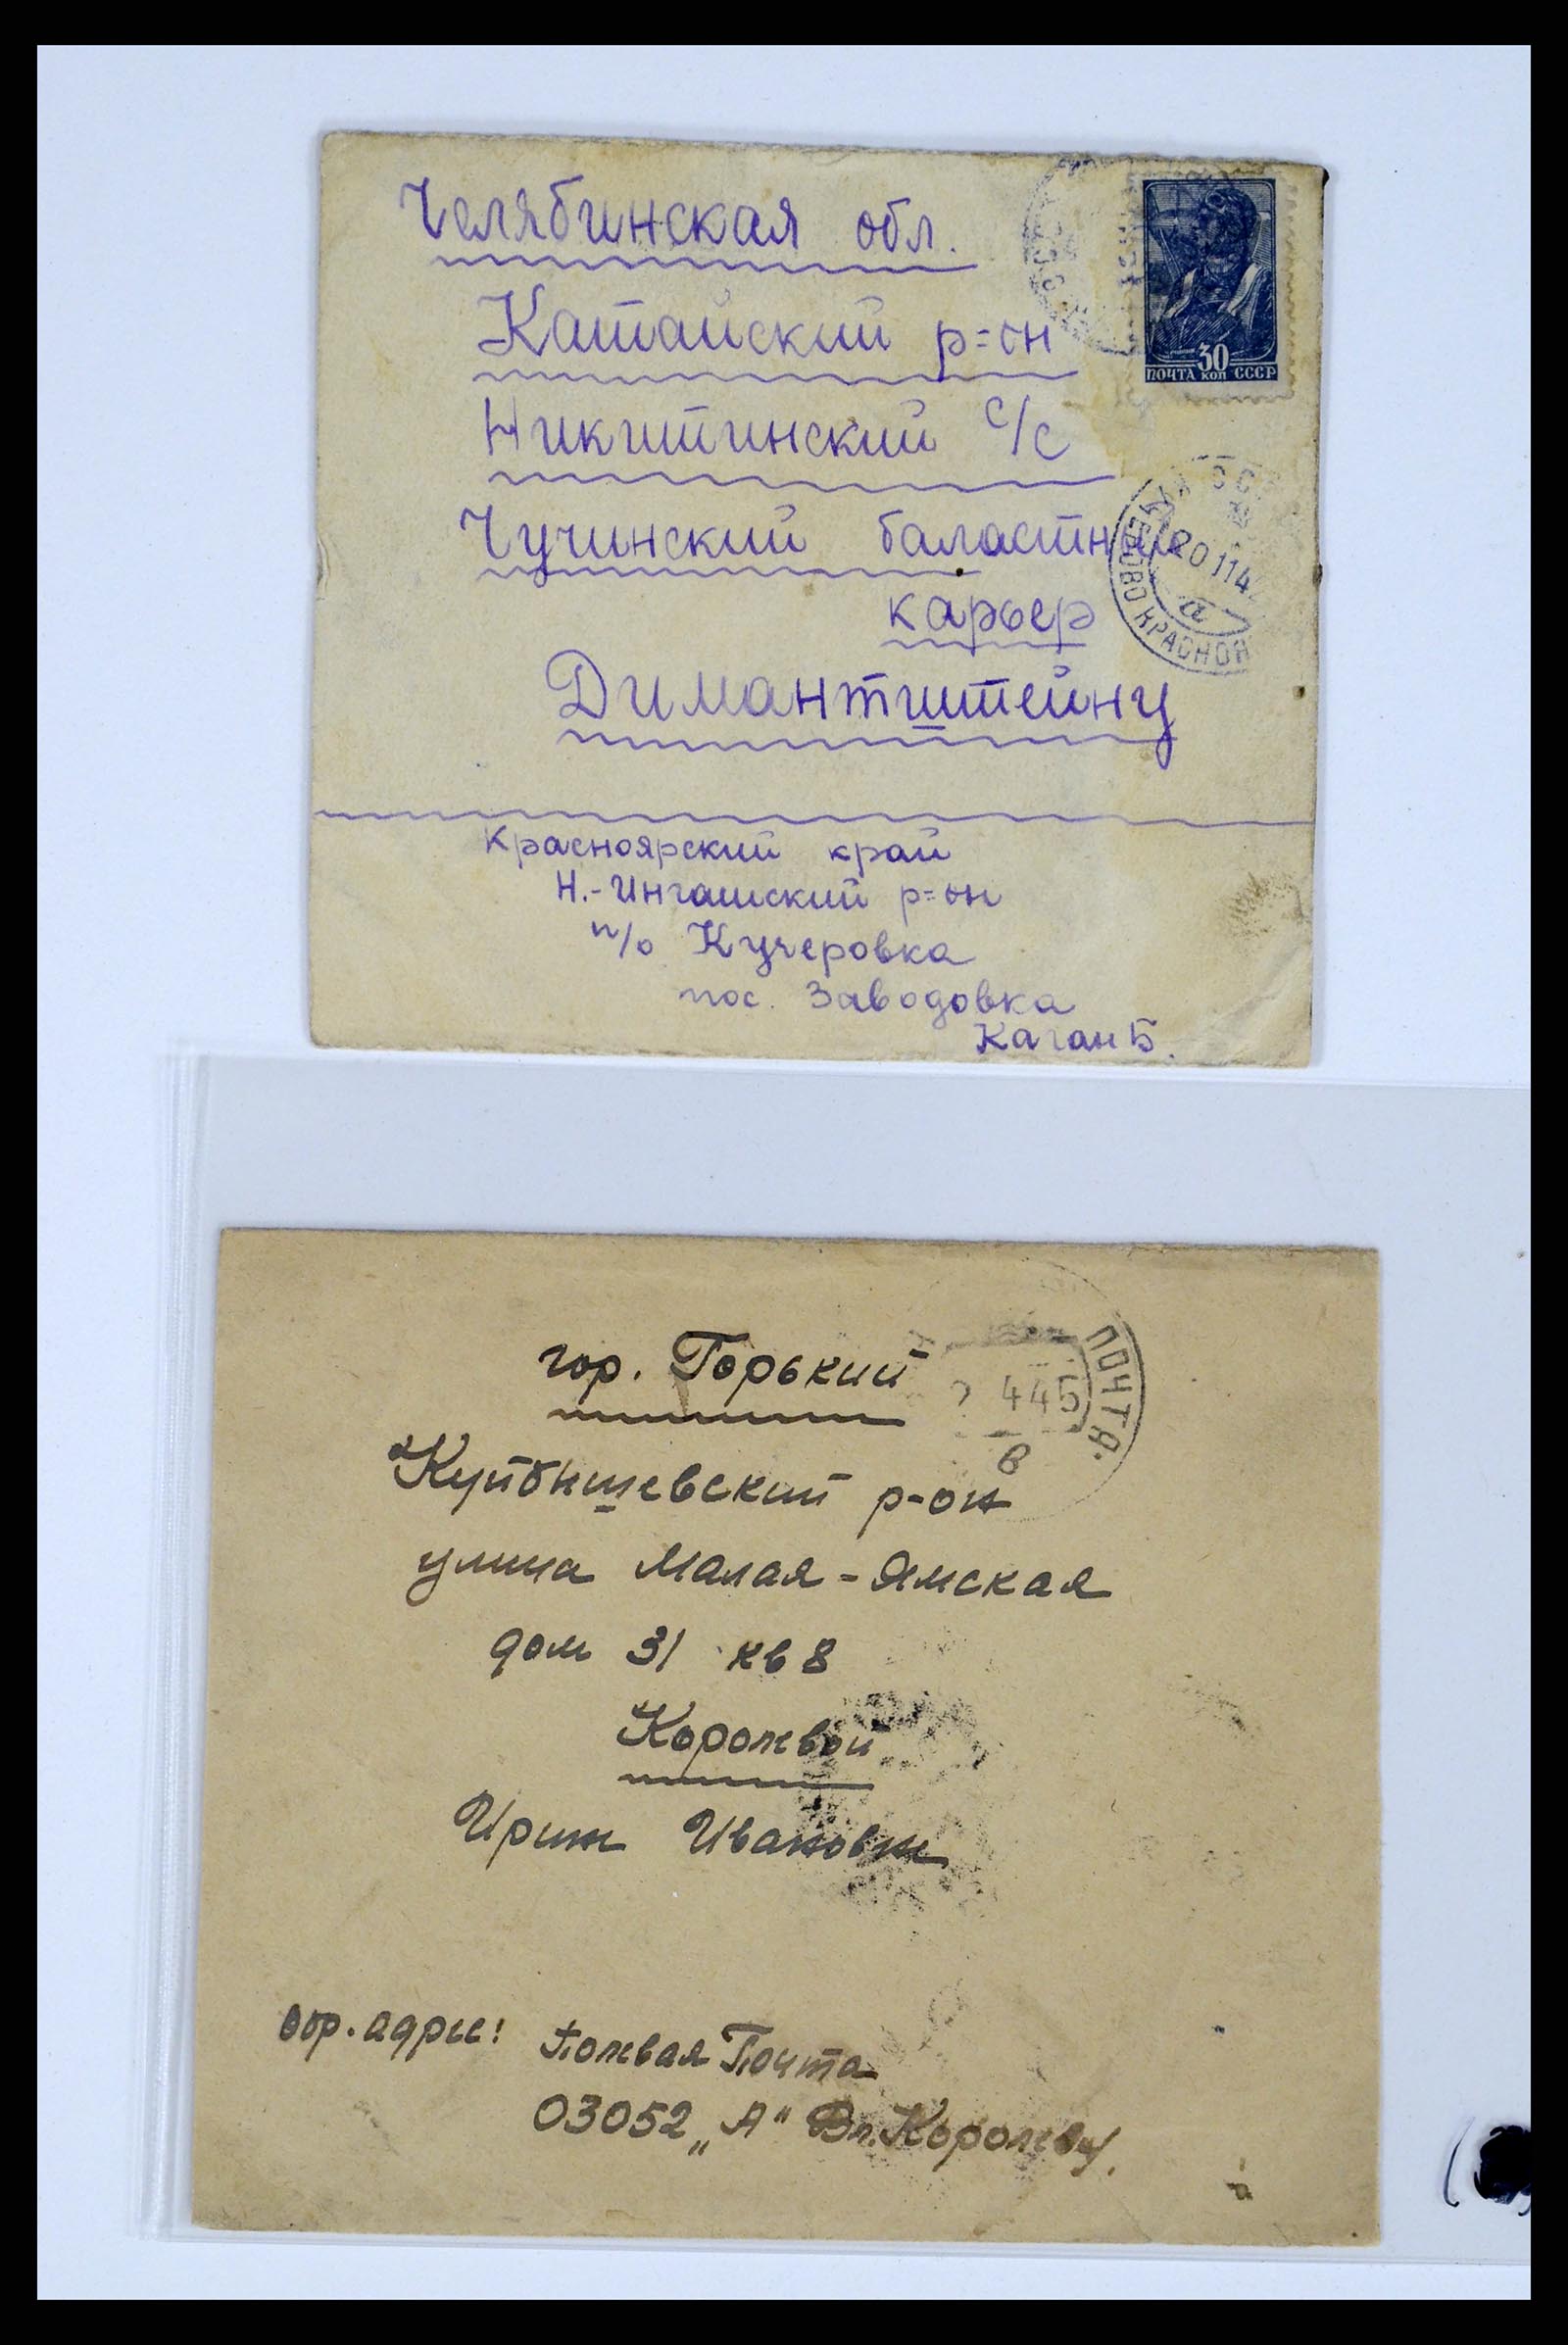 Челябинская обл.
Катайский р=он
Никитинский с/с
Чучинский баластный
карьер
Димантштейну
30
ПОЧТА коп СССР
20 11 4
а
ЕЛОВО КРАСНОЯ
Красноярский край
Н.-Ингашский р=он
п/о Кучеровка
пос. Заводовка
Каган Б.
гор. Горький
ПОЧТА
4 45
в
Куйбышевский р-он
улица Малая-Ямская
дом 31 кв 8
Королевой
Ирине Ивановне
Обр. адрес:
Полевая Почта
03052 „А" Вл. Королеву.